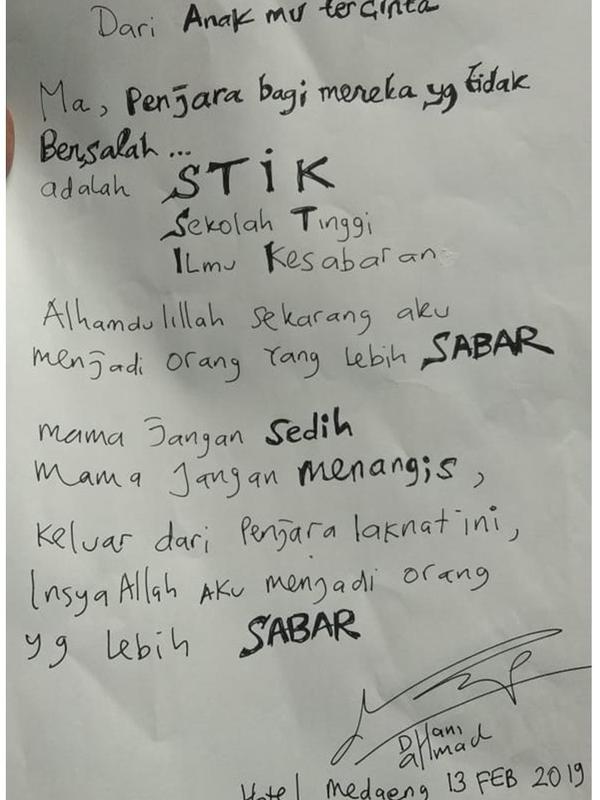 Dari Anak mu tercinta
Ma, Penjara bagi mereka yg tidak
Bersalah ...
adalah STIK
Sekolah Tinggi
ILmu Kesabaran
Alhamdulillah sekarang aku
menjadi orang Yang Lebih SABAR
mama Jangan Sedih
Mama Jangan menangis,
Keluar dari Penjara laknat ini,
Insya Allah AKU menjadi orang
yg Lebih SABAR
DHani
aHmad
Hotel Medaeng 13 FEB 2019